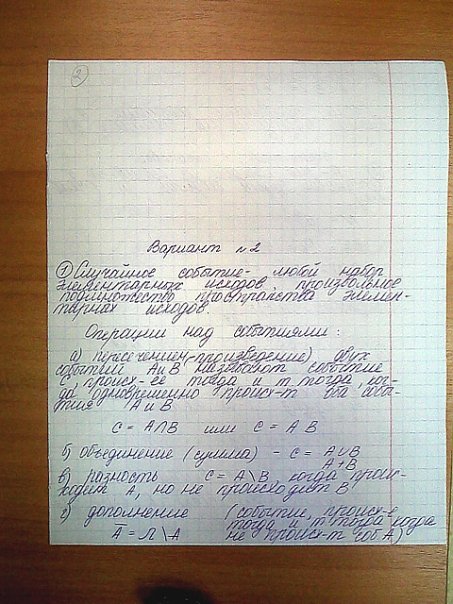 2
Вариант №2
① Случайное событие - любой набор
элементарных исходов, произвольное
подмножество пространства элемен-
тарных исходов.
Операции над событиями:
а) пересечением (произведение) двух
событий А и В называют событие
С, происх-ее тогда и т тогда, ког-
да одновременно происх-т оба собы-
тия А и В
C = A∩B или C = A B
б) объединение (сумма) - C = A∪B
A+B
в) разность C = A\B, когда проис-
ходит А, но не происходит В
г) дополнение (событие, происх-е
тогда и т тогда когда
Ā = Ω\A не происх-т соб. А)